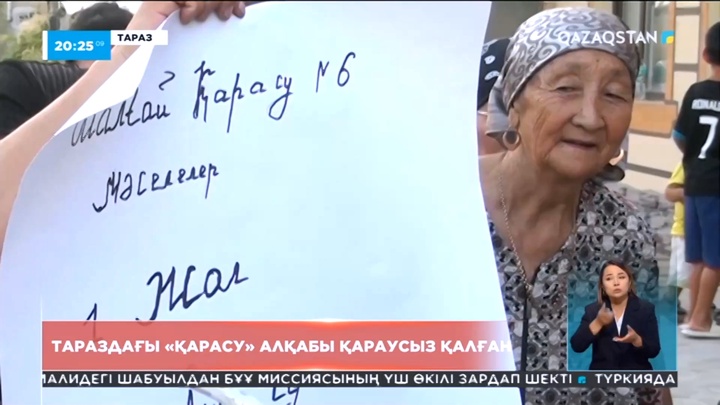 20:25 09
ТАРАЗ
QAZAQSTAN
RONAL
Қарасу №6
Мәселелер
Жол
ТАРАЗДАҒЫ «ҚАРАСУ» АЛҚАБЫ ҚАРАУСЫЗ ҚАЛҒАН
МАЛИДЕГІ ШАБУЫЛДАН БҰҰ МИССИЯСЫНЫҢ ҮШ ӨКІЛІ ЗАРДАП ШЕКТІ ТҮРКИЯДА